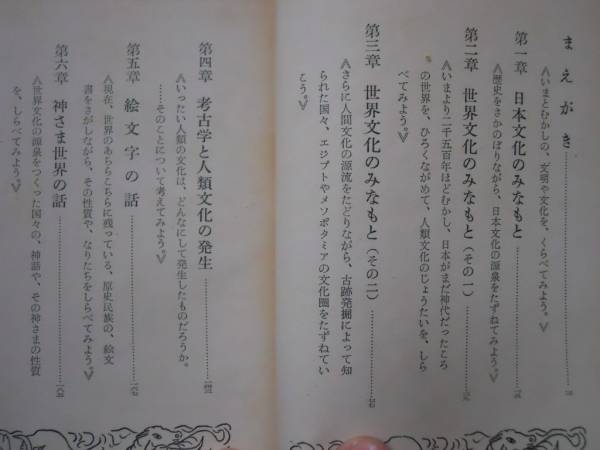 まえがき
≪いまとむかしの、文明や文化を、くらべてみよう。≫
第一章 日本文化のみなもと
≪歴史をさかのぼりながら、日本文化の源泉をたずねてみよう。≫
第二章 世界文化のみなもと（その一）
≪いまより二千五百年ほどむかし、日本がまだ神代だったころ
の世界を、ひろくながめて、人類文化のじょうたいを、しら
べてみよう。≫
第三章 世界文化のみなもと（その二）
≪さらに人間文化の源流をたどりながら、古跡発掘によって知
られた国々、エジプトやメソポタミアの文化圏をたずねてい
こう。≫
第四章 考古学と人類文化の発生
≪いったい人類の文化は、どんなにして発生したものだろうか。
……そのことについて考えてみよう。≫
第五章 絵文字の話
≪現在、世界のあちらこちらに残っている、原史民族の、絵文
書をさがしながら、その性質や、なりたちをしらべてみよう。≫
第六章 神さま世界の話
≪世界文化の源泉をつくった国々の、神話や、その神さまの性質
を、しらべてみよう。≫